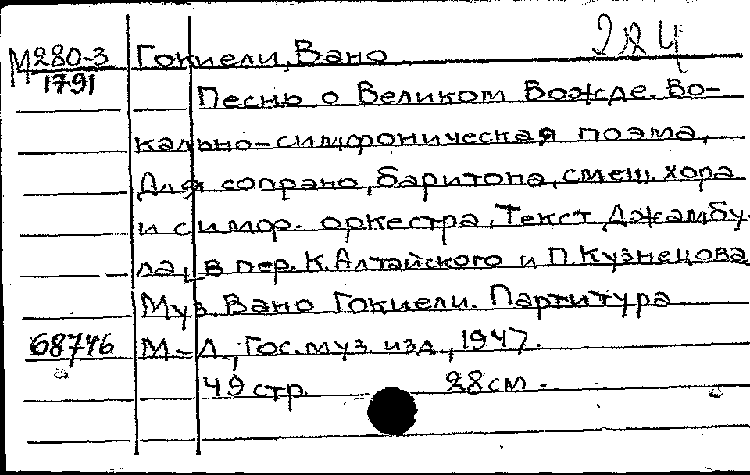 М280-3 Гокиели, Вано 284
1791
Песнь о Великом Вожде. Во-
кально-симфоническая поэма,
Для сопрано, баритона, смеш. хора
и симф. оркестра. Текст Джамбу-
ла, в пер. К. Алтайского и П. Кузнецова
Муз. Вано Гокиели. Партитура
68746 М-Л., Гос. муз. изд., 1947.
49 стр. 28 см.